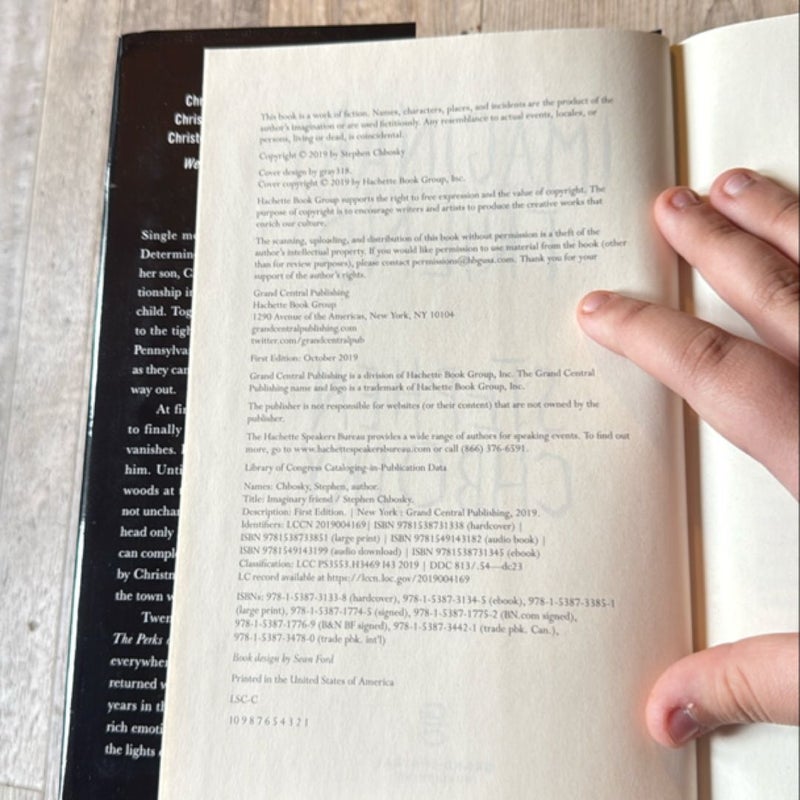 Chr
Christ
Christ
We
Single m
Determin
her son, C
tionship in
child. Tog
to the tigh
Pennsylva
as they can
way out.
At fi
to finally
vanishes.
him. Unti
woods at
not unchan
head only
can compl
by Christm
the town w
Twen
The Perks
everywher
returned w
years in th
rich emoti
the lights
This book is a work of fiction. Names, characters, places, and incidents are the product of the
author's imagination or are used fictitiously. Any resemblance to actual events, locales, or
persons, living or dead, is coincidental.
Copyright © 2019 by Stephen Chbosky
Cover design by gray318.
Cover copyright © 2019 by Hachette Book Group, Inc.
Hachette Book Group supports the right to free expression and the value of copyright. The
purpose of copyright is to encourage writers and artists to produce the creative works that
enrich our culture.
The scanning, uploading, and distribution of this book without permission is a theft of the
author's intellectual property. If you would like permission to use material from the book (other
than for review purposes), please contact permissions@hbgusa.com. Thank you for your
support of the author's rights.
Grand Central Publishing
Hachette Book Group
1290 Avenue of the Americas, New York, NY 10104
grandcentralpublishing.com
twitter.com/grandcentralpub
First Edition: October 2019
Grand Central Publishing is a division of Hachette Book Group, Inc. The Grand Central
Publishing name and logo is a trademark of Hachette Book Group, Inc.
The publisher is not responsible for websites (or their content) that are not owned by the
publisher.
The Hachette Speakers Bureau provides a wide range of authors for speaking events. To find out
more, go to www.hachettespeakersbureau.com or call (866) 376-6591.
Library of Congress Cataloging-in-Publication Data
Names: Chbosky, Stephen, author.
Title: Imaginary friend / Stephen Chbosky.
Description: First Edition. | New York : Grand Central Publishing, 2019.
Identifiers: LCCN 2019004169| ISBN 9781538731338 (hardcover) |
ISBN 9781538733851 (large print) | ISBN 9781549143182 (audio book) |
ISBN 9781549143199 (audio download) | ISBN 9781538731345 (ebook)
Classification: LCC PS3553.H3469 I43 2019 | DDC 813/.54—dc23
LC record available at https://lccn.loc.gov/2019004169
ISBNs: 978-1-5387-3133-8 (hardcover), 978-1-5387-3134-5 (ebook), 978-1-5387-3385-1
(large print), 978-1-5387-1774-5 (signed), 978-1-5387-1775-2 (BN.com signed),
978-1-5387-1776-9 (B&N BF signed), 978-1-5387-3442-1 (trade pbk. Can.),
978-1-5387-3478-0 (trade pbk. int'l)
Book design by Sean Ford
Printed in the United States of America
LSC-C
10 9 8 7 6 5 4 3 2 1